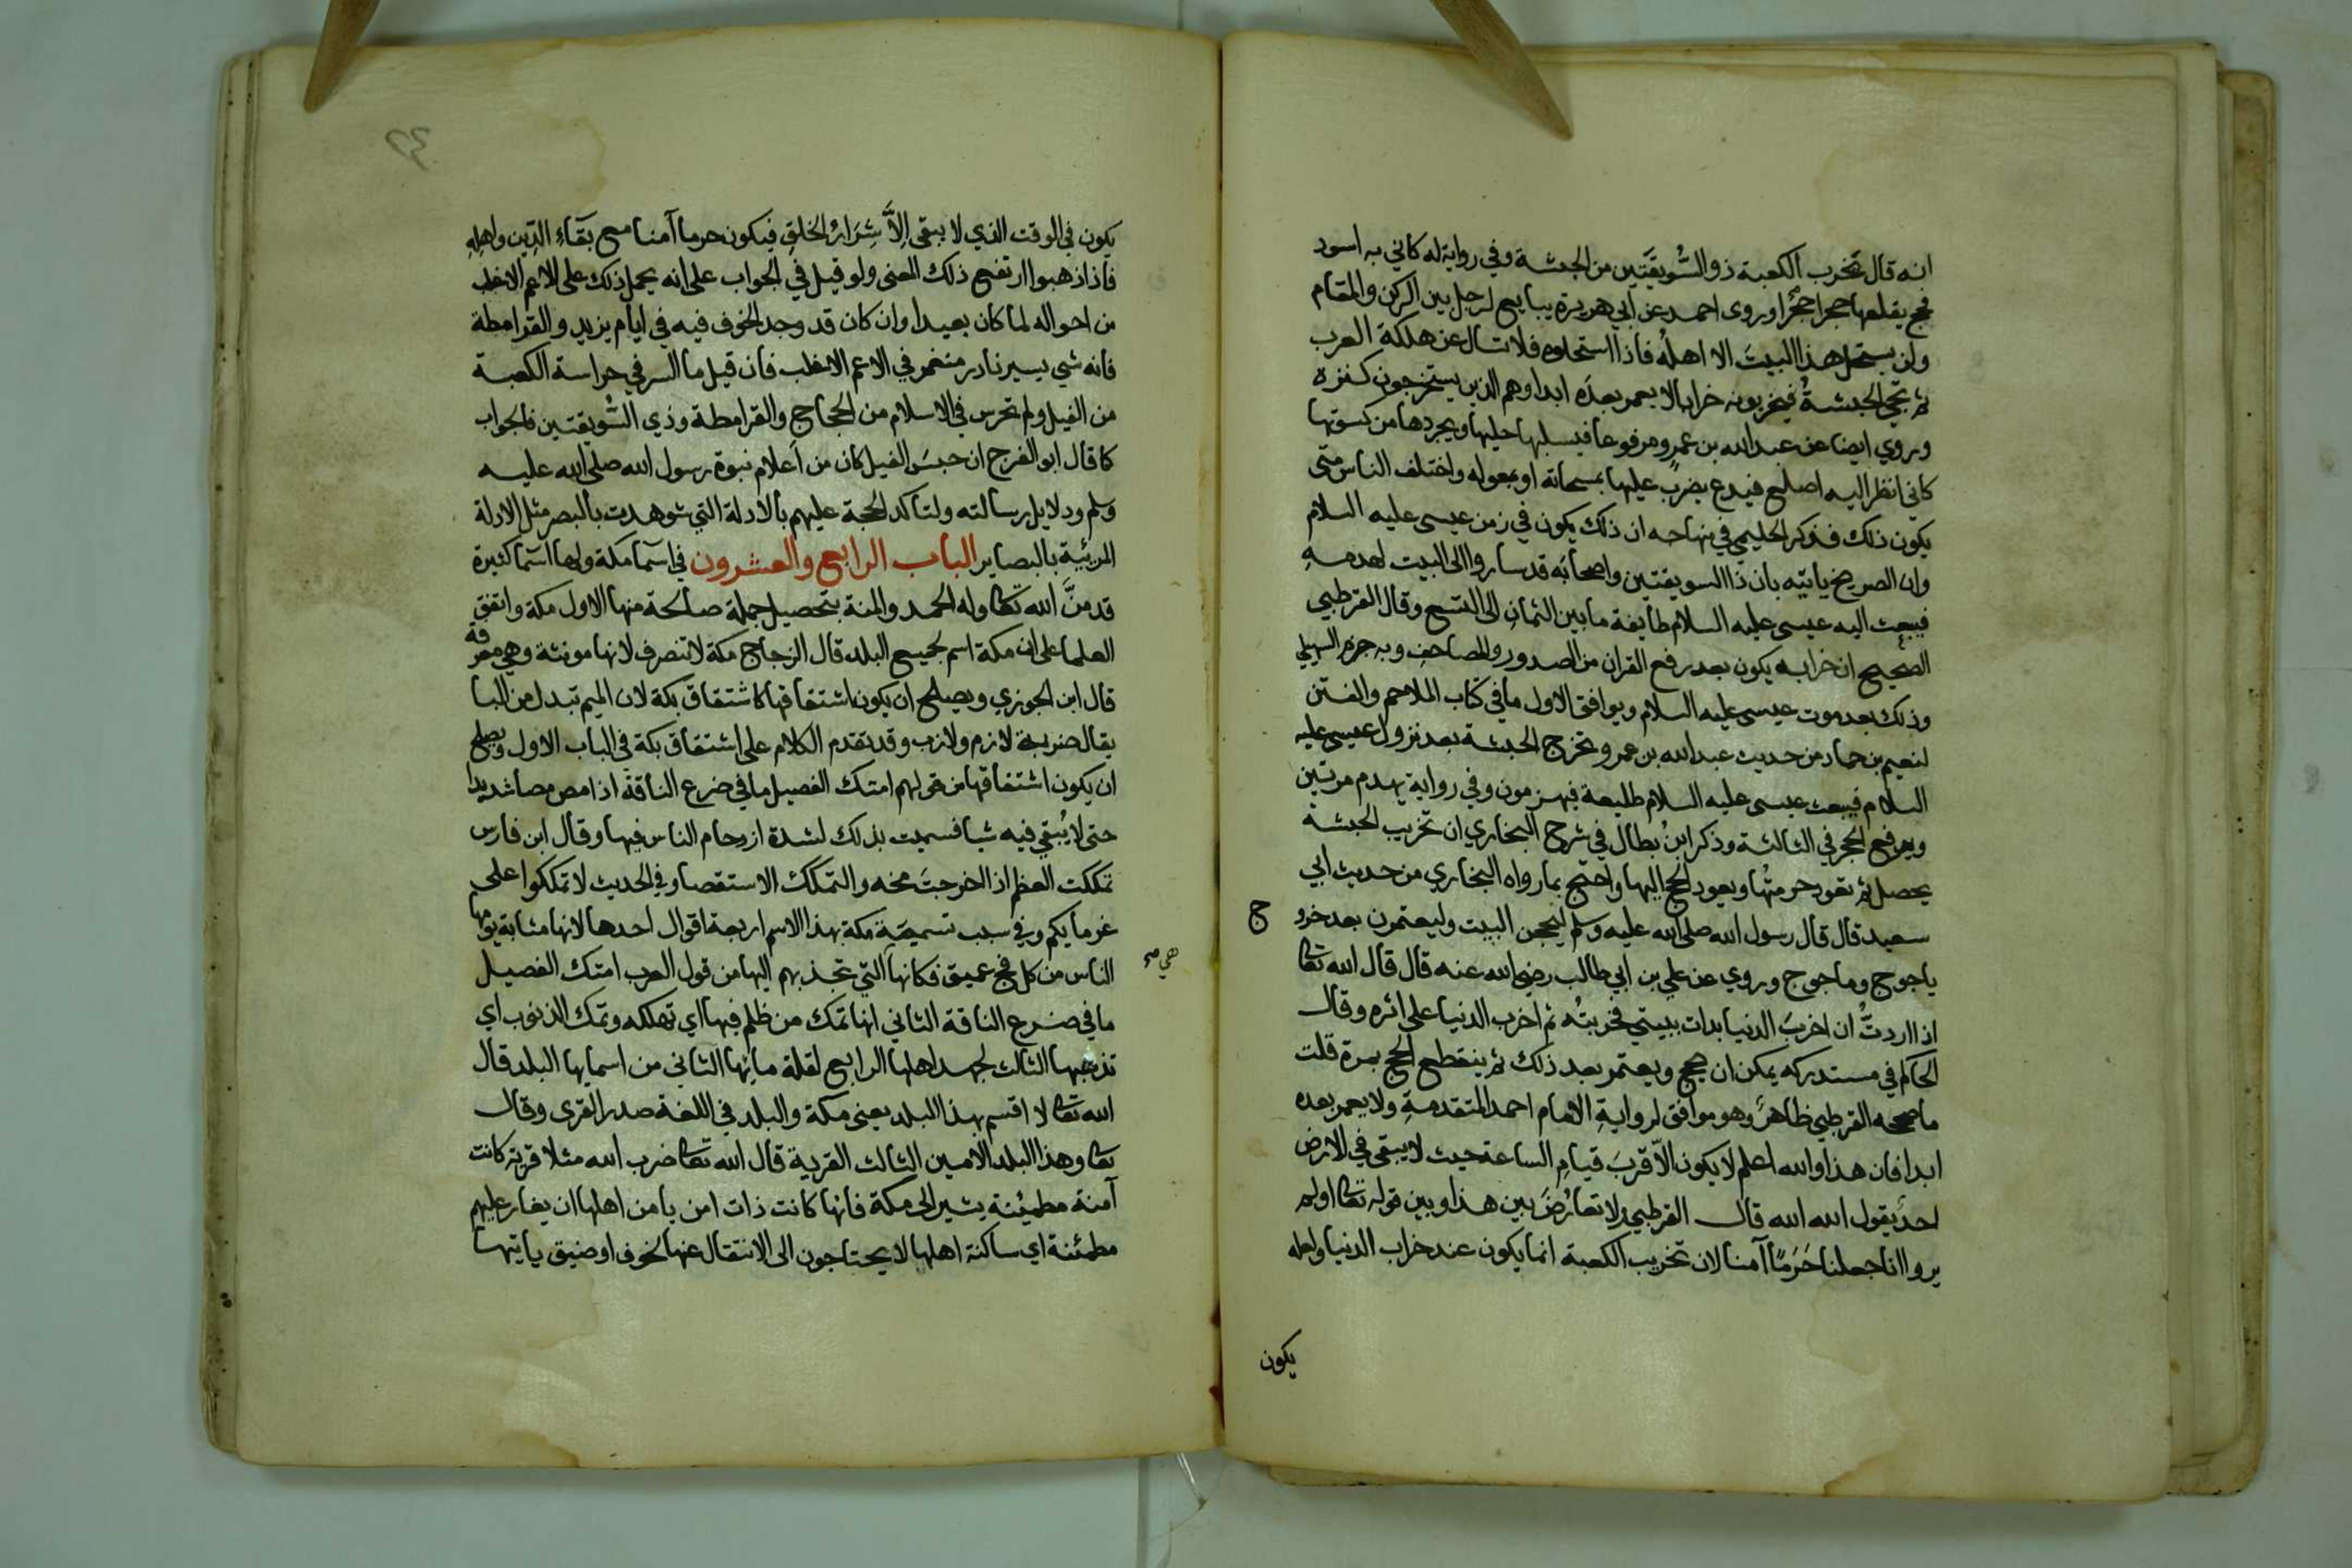 انه قال تخرب الكعبة ذو السُّوَيقَتَين من الحبشة وفي رواية له كاني به اسود
فحج يقلعها حجرا حجرًا وروى احمد عن ابي هريرة يبايع لرجل بين الركن والمقام
ولن يستحل هذا البيتَ الا اهلُه فاذا استحلوه فلا تسال عن هلكة العرب
ثم تجي الحبشةُ فيخربونه خرابا لا يعمر بعدَه ابدا وهم الذين يستخرجون كنزه
وروي ايضا عن عبد الله بن عمرٍو مرفوعا فيسلبها حليها ويجردها من كسوتها
كاني انظر اليه اصليع فيدع يضرب عليها بمسحاته او بمعوله واختلف الناس متى
يكون ذلك فذكر الحليمي في منهاجه ان ذلك يكون في زمن عيسى عليه السلام
وان الصريخ ياتيه بان ذا السويقتين واصحابَه قد ساروا الى البيت لهدمهِ
فيبعث اليه عيسى عليه السلام طايفة ما بين الثمانِ الى التسع وقال القرطبي
الصحيح ان خرابه يكون بعد رفع القران من الصدور والمصاحف وبه جزم السهيلي
وذلك بعد موت عيسى عليه السلام ويوافق الاول ما في كتاب الملاحم والفتن
لنعيم بن حماد من حديث عبد الله بن عمرو تخرج الحبشة بعد نزول عيسى عليه
السلام فيبعث عيسى عليه السلام طليعة فيهزمون وفي رواية يهدم مرتين
ويرفع الحجر في الثالثة وذكر ابنُ بطال في شرح البخاري ان تخريب الحبشة
يحصل ثم تعود حرمتُها ويعود الحج اليها واحتج بما رواه البخاري من حديث ابي
سعيد قال قال رسول الله صلى الله عليه وسلم ليحجن البيت وليعتمرن بعد خرو ج
ياجوج وماجوج وروي عن علي بن ابي طالب رضي الله عنه قال قال الله تعالى
اذا اردتُّ ان اخربَ الدنيا بدات ببيتي فخربتُه ثم اخرب الدنيا على اثره وقال
الحاكم في مستدركه يمكن ان يحج ويعتمر بعد ذلك ثم ينقطع الحج بمرة قلت
ما صححه القرطبي ظاهرٌ وهو موافق لروايةِ الامام احمد المتقدمةِ ولا يعمر بعده
ابدا فان هذا والله اعلم لا يكون الاّ قربَ قيامِ الساعة حيث لا يبقى في الارض
احدٌ يقول الله الله قال القرطبي ولا تعارُضَ بين هذا وبين قوله تعالى اولم
يروا انا جعلنا حَرَمًا آمنا لان تخريب الكعبة انما يكون عند خراب الدنيا ولعله
يكون
٤٢
يكون في الوقت الذي لا يبقى اِلاَّ شِرَارُ الخَلقِ فيكون حرما آمنا مع بقَاءِ الدِّين واهلِهِ
فاذا ذهبوا ارتفع ذلك المعنى ولو قيل في الجواب على انه يحمل ذلك على الاعم الاغلب
من احواله لما كان بعيدا وان كان قد وجد الخوف فيه في ايام يزيد والقرامطة
فانه شي يسير نادر منغمر في الاعم الاغلب فان قيل ما السر في حراسة الكعبة
من الفيل ولم تحرس في الاسلام من الحجاج والقرامطة وذي السُّويقتين فالجواب
كما قال ابو الفرج ان حبسَ الفيل كان من اَعلام نبوة رسول الله صلى الله عليه
وسلم ودلايل رسالته ولتاكد الحجة عليهم بالادلة التي شوهدت بالبصر مثل الادلة
المرئية بالبصاير الباب الرابع والعشرون في اسما مكة ولها اسما كثيرة
قد منَّ الله تعالى وله الحمد والمنة بتحصيل جملة صالحة منها الاول مكة واتفق
العلما على ان مكة اسم لجميع البلد قال الزجاج مكة لا تنصرف لانها مونثة وهي معرفة
قال ابن الجوزي ويصلح ان يكون اشتقاقها كاشتقاق بكة لان الميم تبدل من البا
يقال ضربة لازم ولازب وقد تقدم الكلام على اشتقاق بكة في الباب الاول ويصلح
ان يكون اشتقاقها من قولهم امتك الفصيل ما في ضرع الناقة اذا مص مصا شديدا
حتى لا يُبقي فيه شيا فسميت بذلك لشدة ازدحام الناس فيها وقال ابن فارس
تمككت العظم اذا اخرجتَ مخه والتمكك الاستقصا وفي الحديث لا تمككوا على
غرمايكم وفي سبب تسميَة مكة بهذا الاسم اربعة اقوال احدها لانها مثابة يومها
الناس من كل فج عميق فكانها التي تجذبهم اليها من قول العرب امتك الفصيل
هي صح
ما في ضرع الناقة الثاني انها تمك من ظلم فيها اي تهلكه وتمك الذنوب اي
تذهبها الثالث لجهد اهلها الرابع لقلة مائها الثاني من اسمايها البلد قال
الله تعالى لا اقسم بهذا البلد يعني مكة والبلد في اللغة صدر القرى وقال
تعالى وهذا البلد الامين الثالث القرية قال الله تعالى ضرب الله مثلا قرية كانت
آمنة مطمئنة يشير الى مكة فانها كانت ذات امن يامن اهلها ان يغار عليهم
مطمئنة اي ساكنة اهلها لا يحتاجون الى الانتقال عنها لخوف او ضيق ياتيها